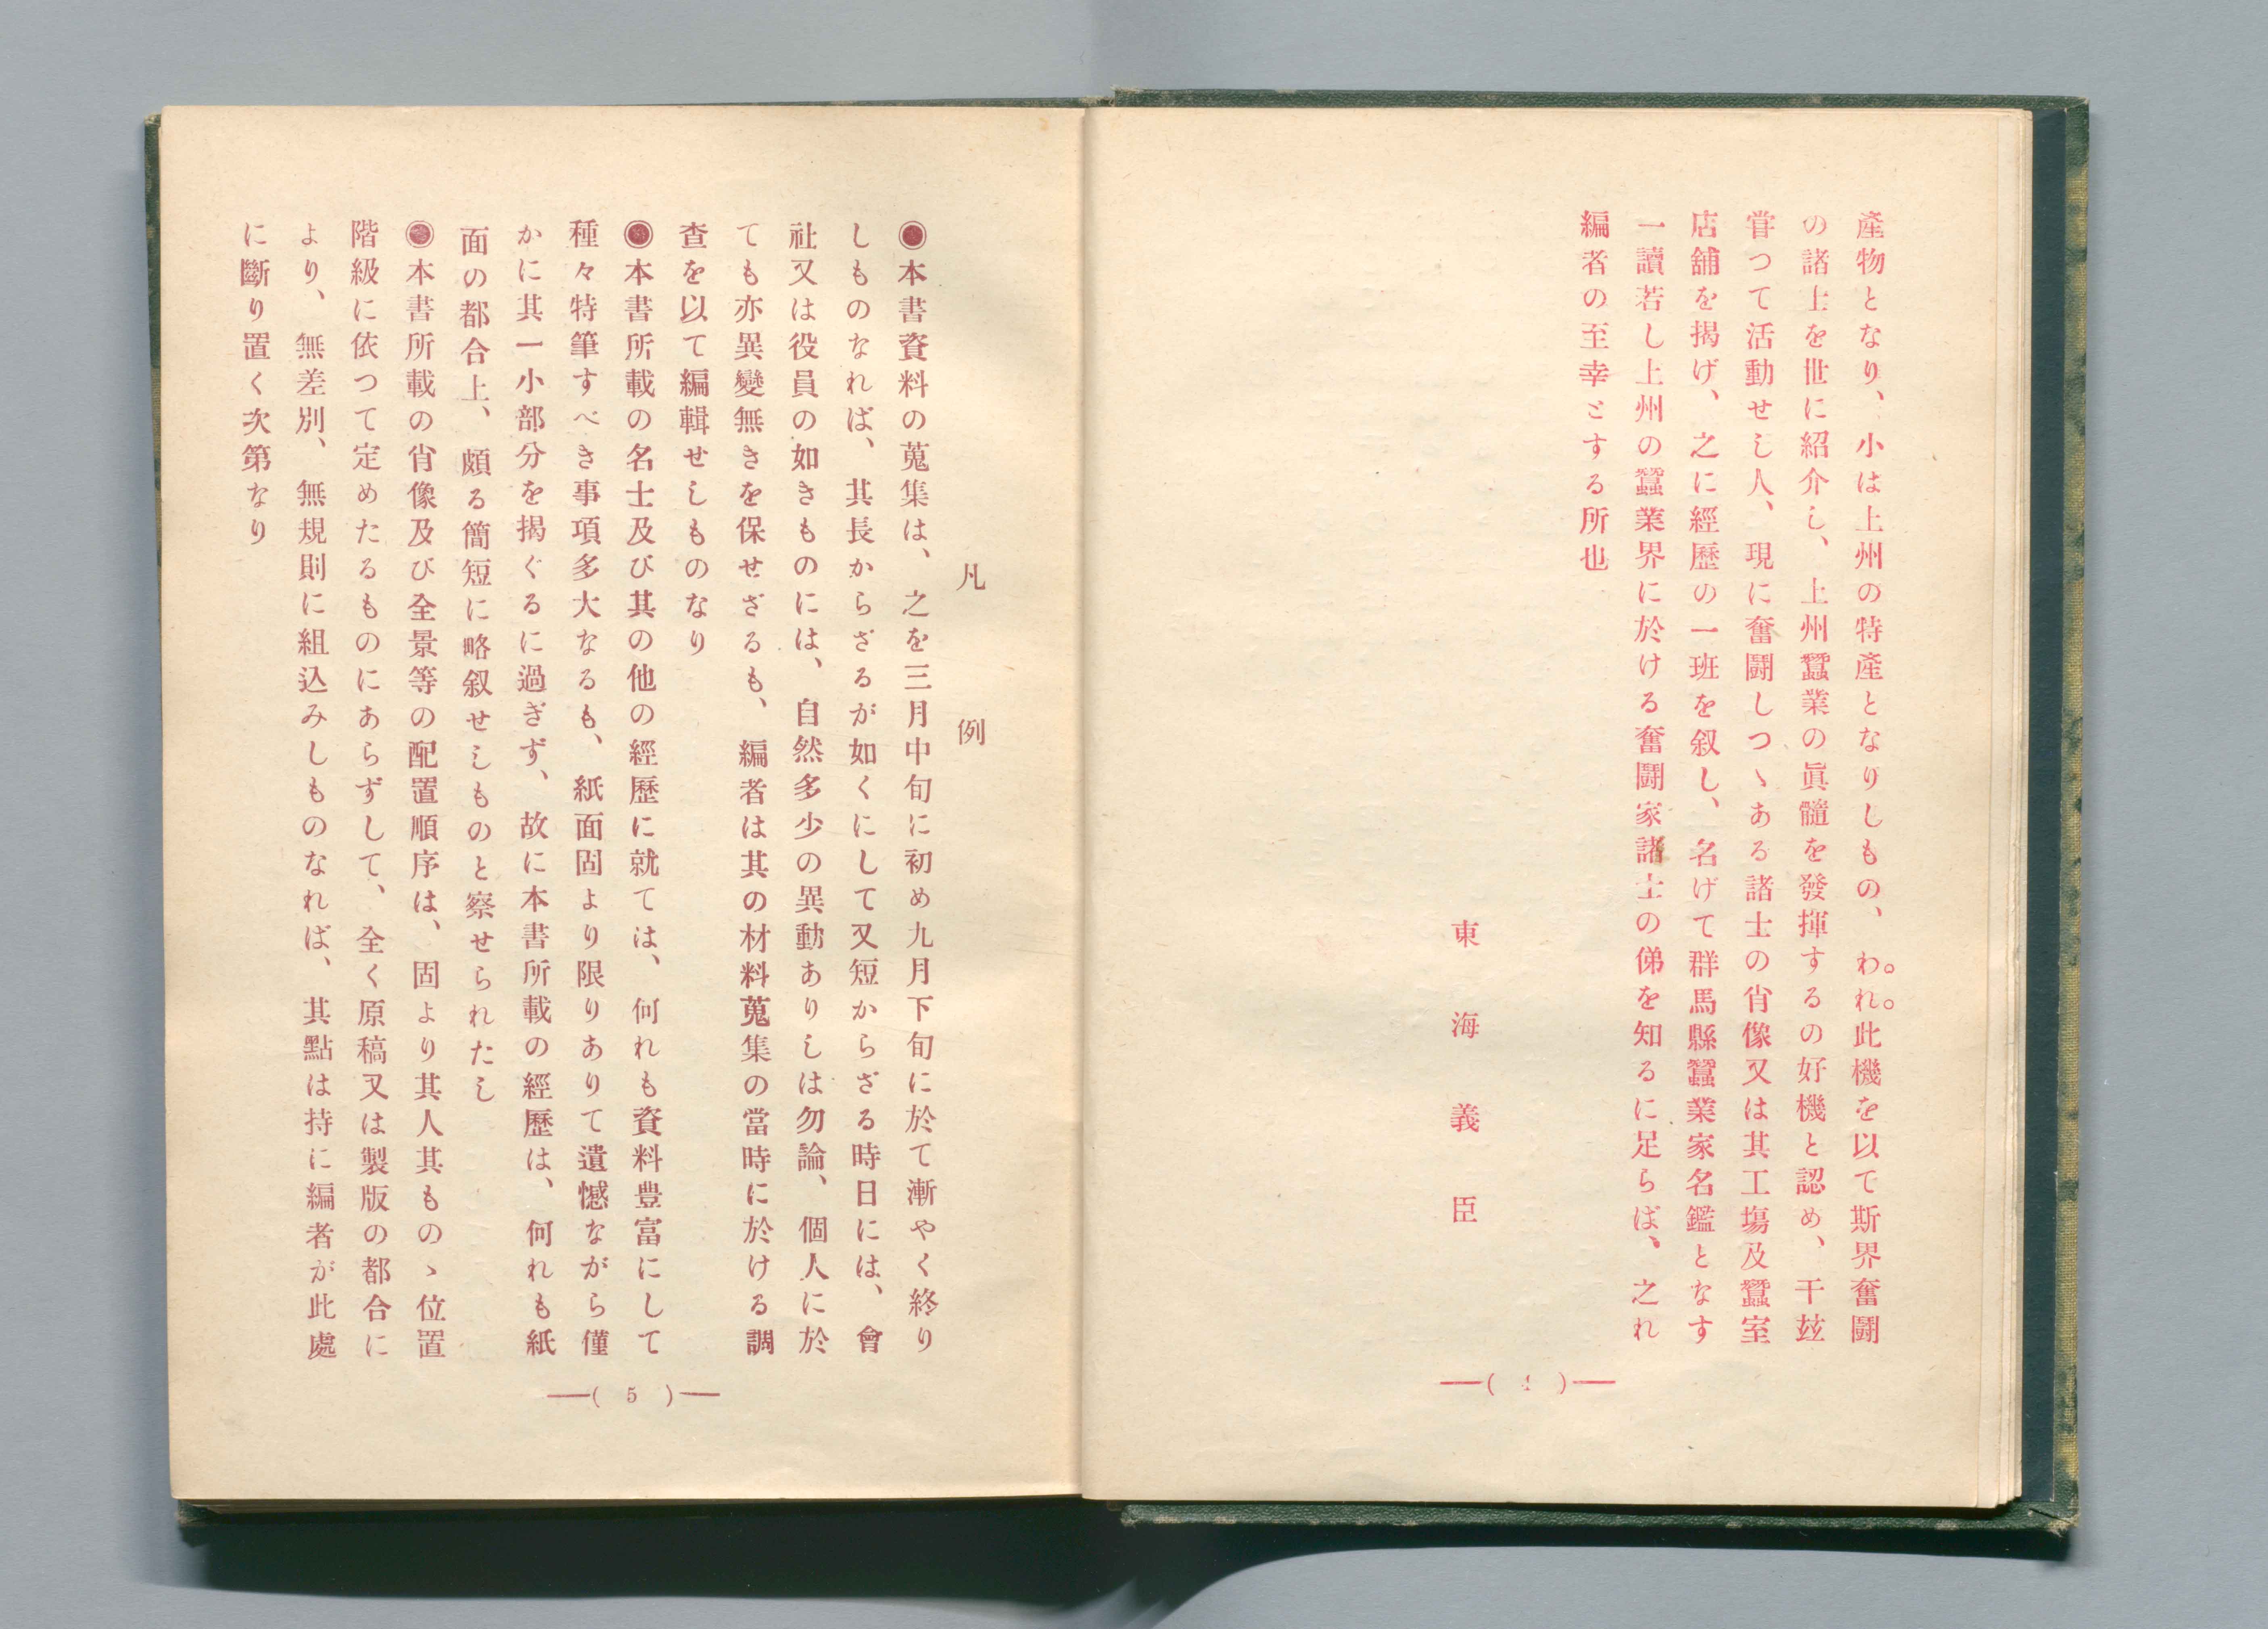 產物となり、小は上州の特產となりしもの、われ此機を以て斯界奮鬪
の諸士を世に紹介し、上州蠶業の眞髓を發揮するの好機と認め、干玆
甞つて活動せし人、現に奮鬪しつゝある諸士の肖像又は其工塲及蠶室
店舖を揭げ、之に經歷の一班を叙し、名げて群馬縣蠶業家名鑑となす
一讀若し上州の蠶業界に於ける奮鬪家諸士の俤を知るに足らば、之れ
編者の至幸とする所也
東海義臣
―( 4 )―
凡例
◉本書資料の蒐集は、之を三月中旬に初め九月下旬に於て漸やく終り
しものなれば、其長からざるが如くにして又短からざる時日には、會
社又は役員の如きものには、自然多少の異動ありしは勿論、個人に於
ても亦異變無きを保せざるも、編者は其の材料蒐集の當時に於ける調
査を以て編輯せしものなり
◉本書所載の名士及び其の他の經歷に就ては、何れも資料豊富にして
種々特筆すべき事項多大なるも、紙面固より限りありて遺憾ながら僅
かに其一小部分を揭ぐるに過ぎず、故に本書所載の經歷は、何れも紙
面の都合上、頗る簡短に略叙せしものと察せられたし
◉本書所載の肖像及び全景等の配置順序は、固より其人其ものゝ位置
階級に依つて定めたるものにあらずして、全く原稿又は製版の都合に
より、無差別、無規則に組込みしものなれば、其點は持に編者が此處
に斷り置く次第なり
―( 5 )―